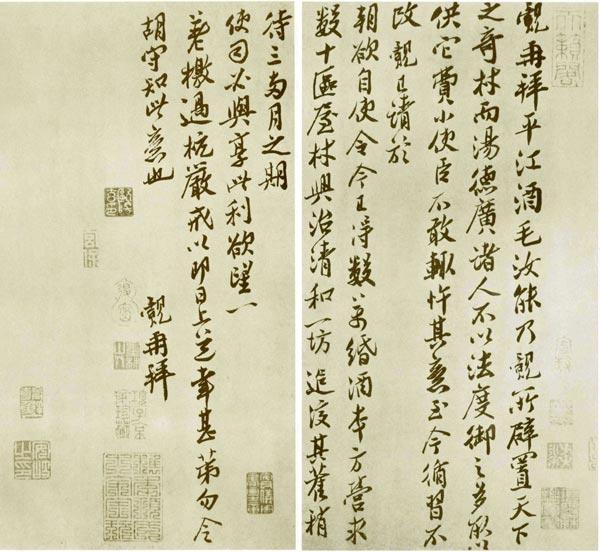 覿再拜平江酒毛汝能乃覿所辟置天下
之奇材而湯德廣諸人不以法度御之多
供它費小使臣不敢輒忤其意至今循習不
改覿已請於
朝欲自使令今已得數萬緡酒本方營求
數十區屋材興治清和一坊追復其舊稍
待三兩月之期
使司必與享此利欲望一
檄過杭嚴戒以即日上道幸甚第勿令
胡守知此意也
覿再拜